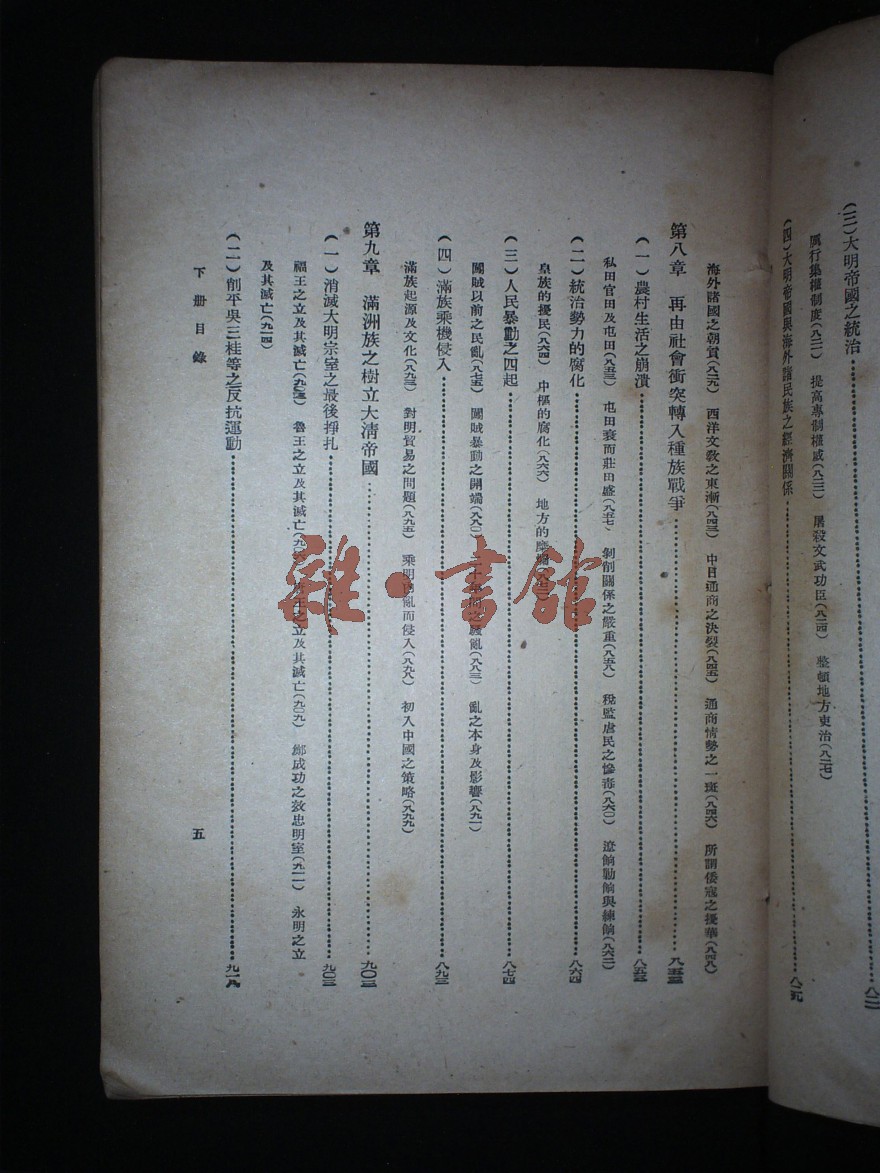 (三)大明帝國之統治……八二一
厲行集權制度(八二一) 提高專制權威(八二三) 屠殺文武功臣(八二四) 整頓地方吏治(八二七)
(四)大明帝國與海外諸民族之經濟關係……八二九
海外諸國之朝貢(八二九) 西洋文敎之東漸(八四三) 中日通商之決裂(八四五) 通商情勢之一斑(八四六) 所謂倭寇之擾華(八四八)
第八章 再由社會衝突轉入種族戰爭……八五三
(一)農村生活之崩潰……八五三
私田官田及屯田(八五三) 屯田衰而莊田盛(八五七) 剝削關係之嚴重(八五八) 稅監虐民之慘毒(八六〇) 遼餉勦餉與練餉(八六二)
(二)統治勢力的腐化……八六四
皇族的擾民(八六四) 中樞的腐化(八六六) 地方的
(三)人民暴動之四起……八七四
闖賊以前之民亂(八七五) 闖賊暴動之開端(八八〇) 之騷亂(八八三) 亂之本身及影響(八九一)
(四)滿族乘機侵入……八九三
滿族起源及文化(八九三) 對明貿易之問題(八九五) 乘明內亂而侵入(八九八) 初入中國之策略(八九九)
第九章 滿洲族之樹立大清帝國……九〇三
(一)消滅大明宗室之最後掙扎……九〇三
福王之立及其滅亡(九〇三) 魯王之立及其滅亡(九〇六) 王之立及其滅亡(九〇九) 鄭成功之效忠明室(九一一) 永明之立
及其滅亡(九一四)
(二)削平吳三桂等之反抗運動……九一八
下册目錄 五
雜·書館